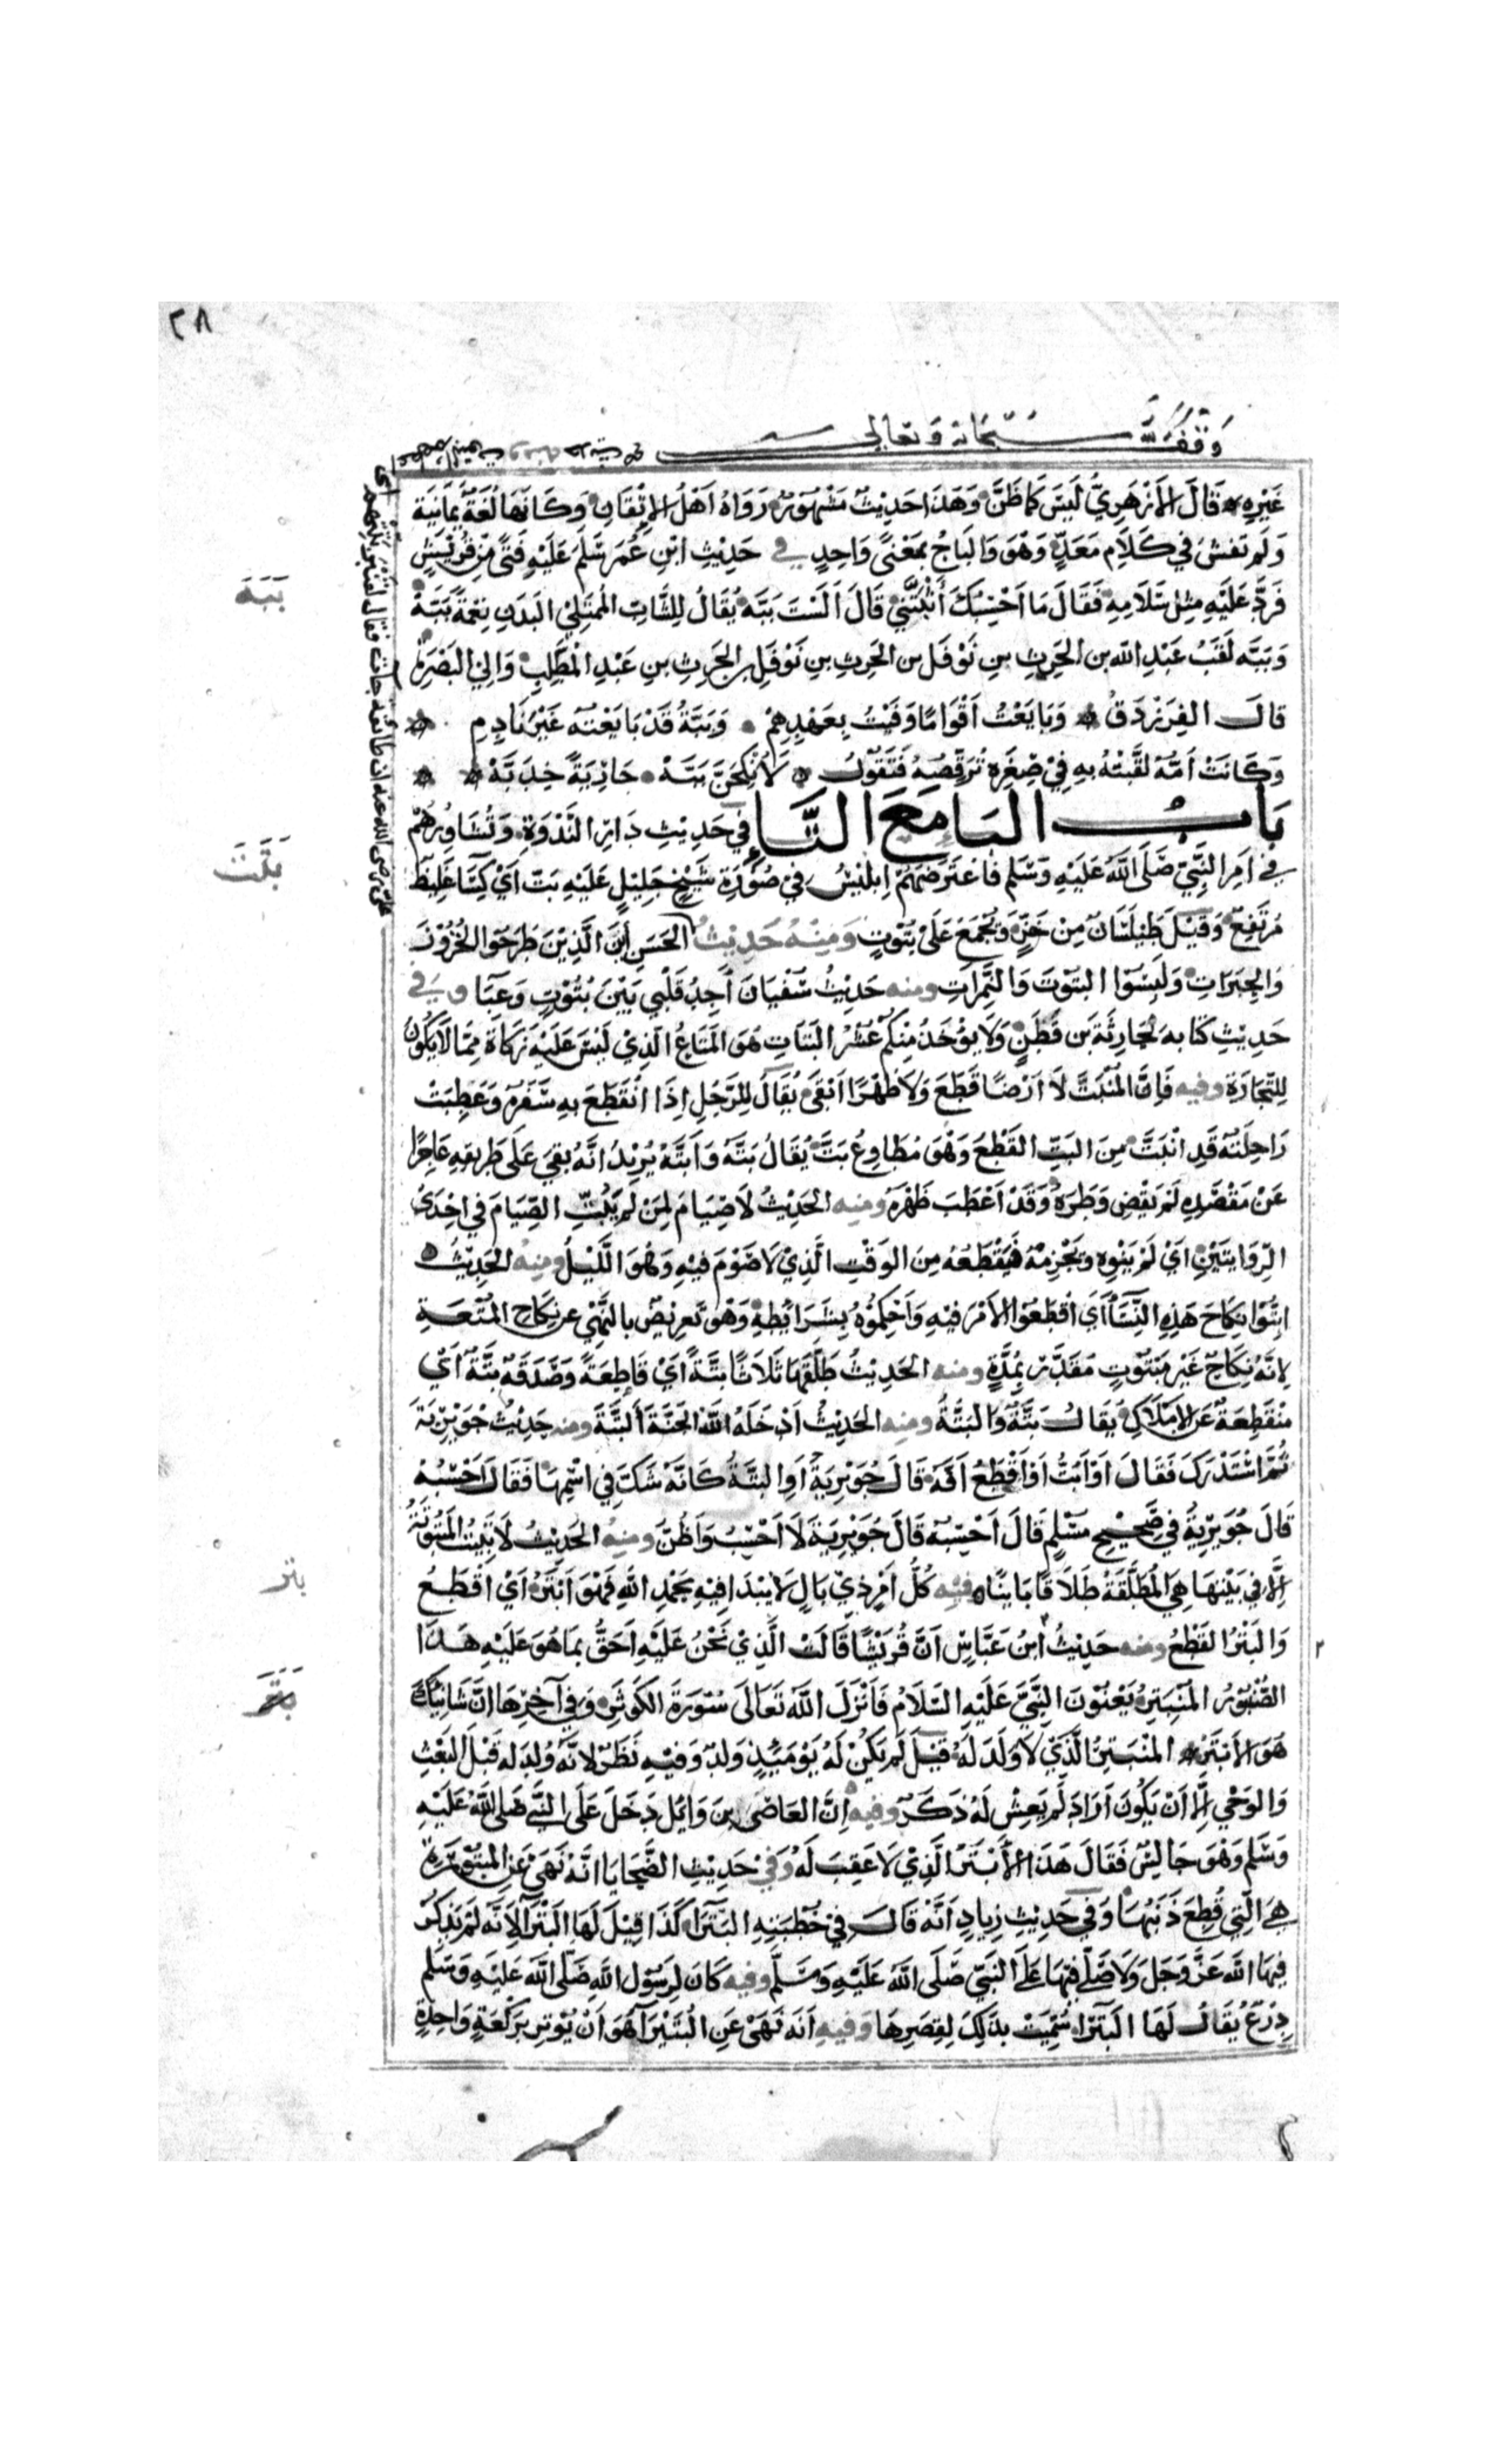 ٢٨
وقف لله سبحانه وتعالى
غَيْرِهِ قَالَ الأَزْهَرِيُّ لَيْسَ كَمَا ظَنَّ وَهَذَا حَدِيثٌ مَشْهُورٌ رَوَاهُ أَهْلُ الإِتْقَانِ وَكَأَنَّهَا لُغَةٌ يَمَانِيَة
وَلَمْ تَفْشُ فِي كَلَامِ مَعَدٍّ وَهُوَ وَالبَاجُ بِمَعْنًى وَاحِدٍ في حَدِيثِ ابْنِ عُمَرَ سَلَّمَ عَلَيْهِ فَتًى مِنْ قُرَيْشٍ
فَرَدَّ عَلَيْهِ مِثْلَ سَلَامِهِ فَقَالَ مَا أَحْسِبُكَ أَثْبَتَّنِي قَالَ أَلَسْتَ بَبَّه يُقَالُ لِلشَّابِّ المُمْتَلِئِ البَدَنِ نِعْمَةً بَبَّة
وَبَبَّه لَقَبُ عَبْدِ الله بن الحَرِثِ بنِ نَوْفَل بن الحَرِثِ بنِ نَوْفَلِ بن الحَرِثِ بنِ عَبْدِ المُطَّلِبِ وَالِي البَصْرَةِ
قَالَ الفَرَزْدَقُ وَبَايَعْتُ أَقْوَامًا وَفَيْتُ بِعَهْدِهِمْ وَبَبَّةُ قَدْ بَايَعْتُه غَيْرَ نَادِمِ
وَكَانَتْ أُمُّهُ لَقَّبَتْهُ بِهِ فِي صِغَرِهِ تُرَقِّصُهُ فَتَقُولُ لَأُنْكِحَنَّ بَبَّهْ جَارِيَةً خِدَبَّهْ
بَابُ البَاءِ مَعَ التَّاءِ فِي حَدِيثِ دَارِ النَّدْوَةِ وَتَشَاوُرِهُمْ
فِي أَمْرِ النَّبِيِّ صَلَّى اللهُ عَلَيْهِ وَسَلَّم فَاعْتَرَضَهُمْ إِبْلِيسُ فِي صُورَةِ شَيْخٍ جَلِيلٍ عَلَيْهِ بَتٌّ أَيْ كِسَاءٌ غَلِيظٌ
مُرَبَّعٌ وَقِيلَ طَيْلَسَانٌ مِنْ خَزٍّ وَيُجْمَعُ عَلَى بُتُوتٍ وَمِنْهُ حَدِيثُ الحَسَنِ أَيْنَ الَّذِينَ طَرَحُوا الخُزُوزَ
وَالحِبَرَاتِ وَلَبِسُوا البُتُوتَ وَالنَّمِرَاتِ ومنه حَدِيثُ سُفْيَانَ أَجِدُ قَلْبِي بَيْنَ بُتُوتٍ وَعَبَاءٍ وفي
حَدِيثِ كتَابه لِحَارِثَةَ بن قَطَنٍ وَلَا يُؤْخَذُ مِنْكُمْ عُشْرُ البَتَاتِ هُوَ المَتَاعُ الَّذِي لَيْسَ عَلَيْهِ زَكَاةٌ مِمَّا لَا يَكُونُ
لِلتِّجَارَةِ وفيه فَإِنَّ المُنْبَتَّ لَا أَرْضًا قَطَعَ وَلَا ظَهْرًا أَبْقَى يُقَالُ لِلرَّجُلِ إِذَا انْقَطَعَ بِهِ سَفَرُهُ وَعَطِبَتْ
رَاحِلَتُهُ قَدِ انْبَتَّ مِنَ البَتِّ القَطْعِ وَهُوَ مُطَاوِعُ بَتَّ يُقَالُ بَتَّهُ وَأَبَتَّهُ يُرِيدُ أَنَّهُ بَقِيَ عَلَى طَرِيقِهِ عَاجِزًا
عَنْ مَقْصَدِهِ لَمْ يَقْضِ وَطَرَهُ وَقَدْ أَعْطَبَ ظَهْرَهُ ومنه الحَدِيثُ لَا صِيَامَ لِمَنْ لَمْ يَبُتِّ الصِّيَامَ فِي إِحْدَى
الرِّوَايَتَيْنِ أَيْ لَمْ يَنْوِهِ وَيَجْزِمْهُ فَيَقْطَعُهُ مِنَ الوَقْتِ الَّذِي لَا صَوْمَ فِيهِ وَهُوَ اللَّيْلُ ومنه الحَدِيثُ
أَبِتُّوا نِكَاحَ هَذِهِ النِّسَاءِ أَيْ اقْطَعُوا الأَمْرَ فِيهِ وَأَحْكِمُوهُ بِشَرَائِطِهِ وَهُوَ تَعْرِيضٌ بِالنَّهْيِ عَن نِكَاحِ المُتْعَةِ
لِأَنَّهُ نِكَاحٌ غَيْرُ مَبْتُوتٍ مُقَدَّرٌ بِمُدَّةٍ ومنه الحَدِيثُ طَلَّقَهَا ثَلَاثًا بَتَّةً أَيْ قَاطِعَةً وَصَدَقَةٌ بَتَّةٌ أَيْ
مُنْقَطِعَةٌ عَنِ الأَمْلَاكِ يُقَالُ بَتَّةٌ وَالبَتَّةُ ومنه الحَدِيثُ أَدْخَلَهُ اللهُ الجَنَّةَ أَلْبَتَّةَ ومنه حَدِيثُ جُوَيْرِيَةَ
ثُمَّ اسْتَدْرَكَ فَقَالَ أَوْ أَبُتُّ أَوْ أَقْطَعُ أَنَّهُ قَالَ جُوَيْرِيَةُ أَوِ البَتَّةُ كَأَنَّهُ شَكَّ فِي اسْمِهَا فَقَالَ أَحْسِبُهُ
قَالَ جُوَيْرِيَةُ فِي صَحِيحِ مُسْلِمٍ قَالَ أَحْسِبُهُ قَالَ جُوَيْرِيَةَ لَا أَحْسِبُ وَأَظُنُّ ومنه الحَدِيثُ لَا تَبِيتُ المَبْتُوتَةُ
إِلَّا فِي بَيْتِهَا هِيَ المُطَلَّقَةُ طَلَاقًا بَايِنًا وفيه كُلُّ أَمْرٍ ذِي بَالٍ لَا يُبْدَأُ فِيهِ بِحَمْدِ اللهِ فَهُوَ أَبْتَرُ أَيْ أَقْطَعُ
وَالبَتْرُ القَطْعُ ومنه حَدِيثُ ابْنُ عَبَّاسٍ أَنَّ قُرَيْشًا قَالَتْ الَّذِي نَحْنُ عَلَيْهِ أَحَقُّ بِمَا هُوَ عَلَيْهِ هَذَا
الصُّنْبُورُ المُنْبَتِرُ يَعْنُونَ النَّبِيَّ عَلَيْهِ السَّلَامُ فَأَنْزَلَ اللهُ تَعَالَى سُورَةَ الكَوْثَرِ وَفِي آخِرِهَا إِنَّ شَانِئَكَ
هُوَ الأَبْتَرُ المُنْبَتِرُ الَّذِي لَا وَلَدَ لَهُ قِيلَ لَمْ يَكُنْ لَهُ يَوْمَئِذٍ وَلَدٌ وَفِيهِ نَظَرٌ لِأَنَّهُ وُلِدَ لَهُ قَبْلَ البَعْثِ
وَالوَحْيِ إِلَّا أَنْ يَكُونَ أَرَادَ لَمْ يَعِشْ لَهُ ذَكَرٌ وفيه أَنَّ العَاصِيَ بنَ وَائِلٍ دَخَلَ عَلَى النَّبِيِّ صَلَّى اللهُ عَلَيْهِ
وَسَلَّم وَهُوَ جَالِسٌ فَقَالَ هَذَا الأَبْتَرُ الَّذِي لَا عَقِبَ لَهُ وَفِي حَدِيثِ الضَّحَايَا أَنَّهُ نَهَى عَنِ المَبْتُورَةِ
هِيَ الَّتِي قُطِعَ ذَنَبُهَا وَفِي حَدِيثِ زِيَادٍ أَنَّهُ قَالَ فِي خُطْبَتِهِ البَتْرَاءِ كَذَا قِيلَ لَهَا البَتْرَاءُ لِأَنَّهُ لَمْ يَذْكُرْ
فِيهَا اللهَ عَزَّ وَجَلَّ وَلَا صَلَّى فِيهَا عَلَى النَّبِيِّ صَلَّى اللهُ عَلَيْهِ وَسَلَّم وفيه كَانَ لِرَسُولِ اللهِ صَلَّى اللهُ عَلَيْهِ وَسَلَّم
دِرْعٌ يُقَالُ لَهَا البَتْرَاءُ سُمِّيَتْ بِذَلِكَ لِقِصَرِهَا وَفِيهِ أَنَّهُ نَهَى عَنِ البُتَيْرَاءِ هُوَ أَنْ يُوتِرَ بِرَكْعَةٍ وَاحِدَةٍ
بَبَّه
بَتَتَ
بتر